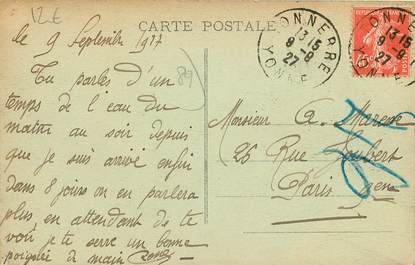 12€
CARTE POSTALE
TONNERRE
13 15
9 - 9
27
YONNE
TONNERRE
13 15
9 - 9
27
YONNE
le 9 Septembre 1927
89
Tu parles d'un
temps de l'eau du
matin au soir depuis
que je suis arrivé enfin
dans 8 jours on en parlera
plus en attendant de te
voir je te serre un bonne
poignée de main
Monsieur A.
26 Rue Joubert
Paris 9em